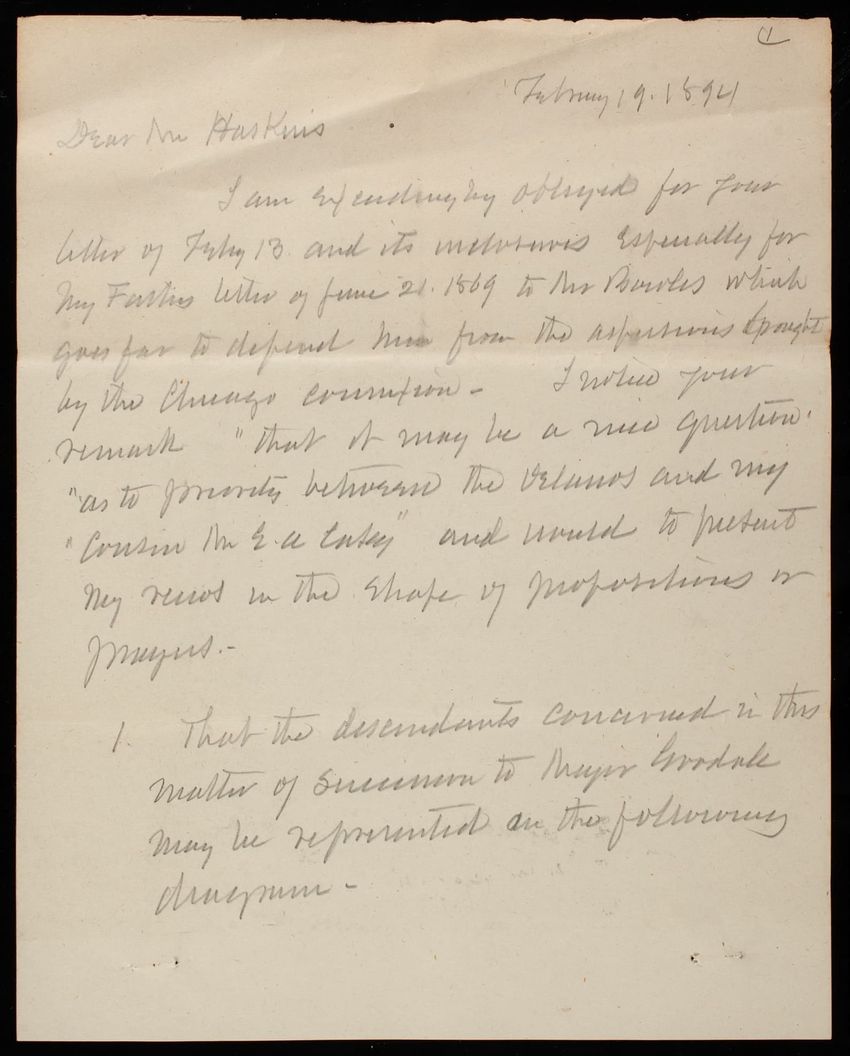 1
February 19. 1894
Dear Mr Haskins
I am exceedingly obliged for your
letter of Feby 13 and its inclosures Especially for
my Fathers letter of June 21. 1869 to Mr Bowles which
goes far to defend him from the aspersions
by the Chicago connexion - I notice your
remark "that it may be a nice question
"as to priority between the Delanos and my
"Cousin Mr E. A Casey" and would to present
my views in the Shape of propositions or
prayers.-
1. That the descendants concerned in this
matter of Succession to Major Goodale
may be represented in the following
diagram -